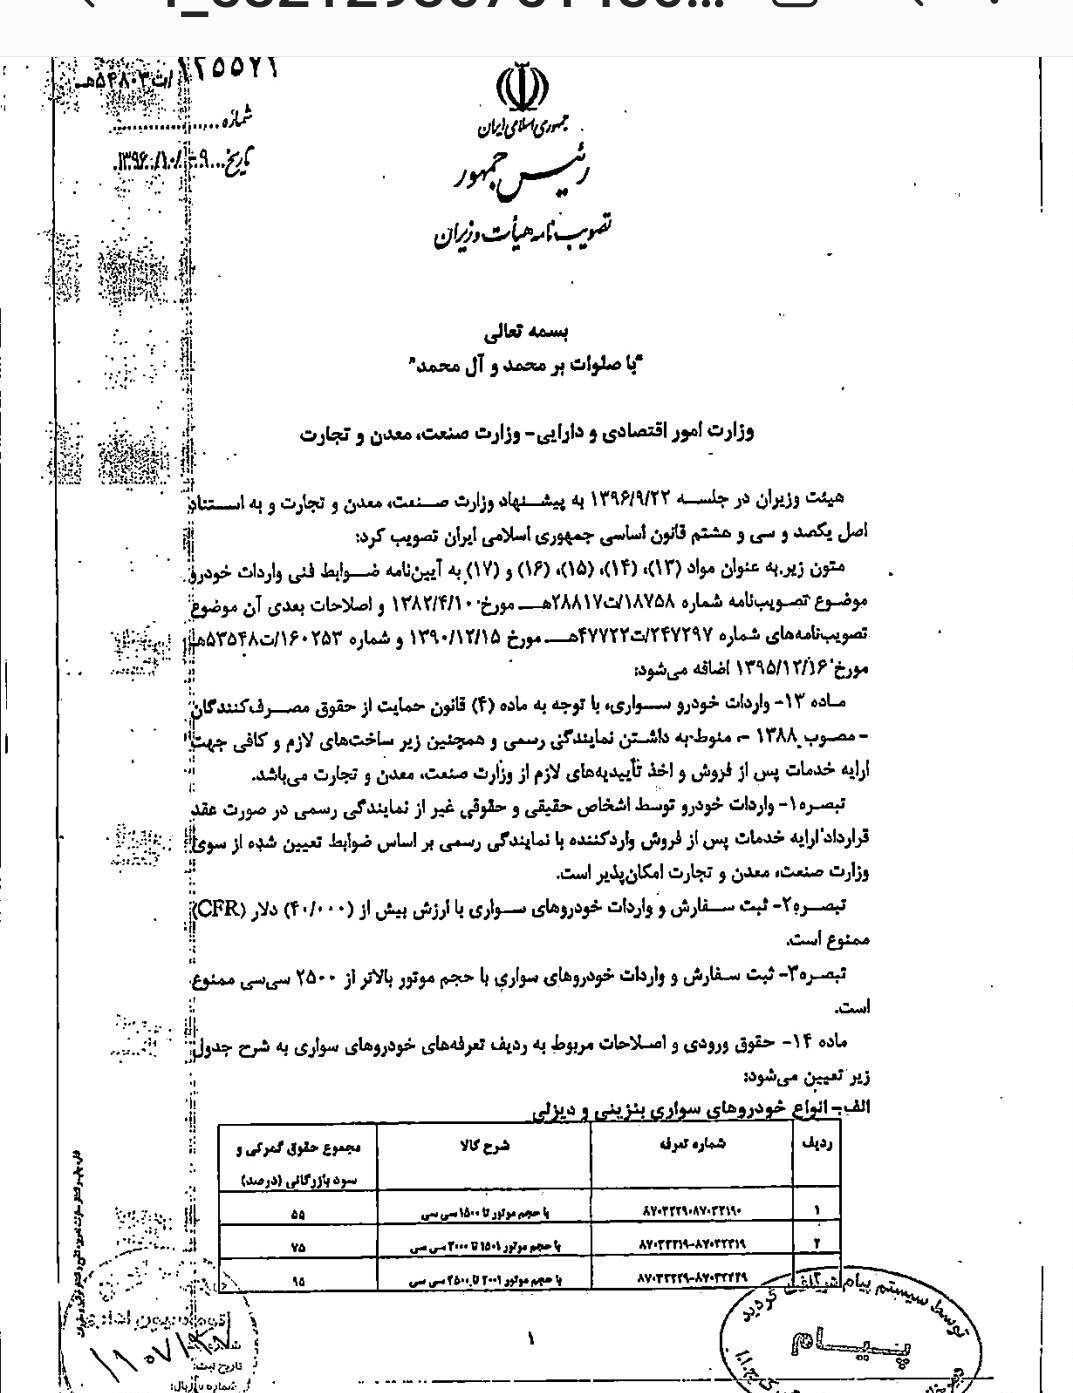 ۱۲۵۵۷۱/ت۵۴۸۰۳هـ
شماره
تاریخ ۱۳۹۶/۱۰/۰۹
جمهوری اسلامی ایران
رئیس جمهور
تصویب نامه هیأت وزیران
بسمه تعالی
"با صلوات بر محمد و آل محمد"
وزارت امور اقتصادی و دارایی- وزارت صنعت، معدن و تجارت
هیئت وزیران در جلسه ۱۳۹۶/۹/۲۲ به پیشنهاد وزارت صنعت، معدن و تجارت و به استناد
اصل یکصد و سی و هشتم قانون اساسی جمهوری اسلامی ایران تصویب کرد:
متون زیر به عنوان مواد (۱۳)، (۱۴)، (۱۵)، (۱۶) و (۱۷) به آیین‌نامه ضوابط فنی واردات خودرو
موضوع تصویب‌نامه شماره ۱۸۷۵۸/ت۲۸۸۱۷هـ مورخ ۱۳۸۲/۴/۱۰ و اصلاحات بعدی آن موضوع
تصویب‌نامه‌های شماره ۲۴۷۲۹۷/ت۴۷۷۲۲هـ مورخ ۱۳۹۰/۱۲/۱۵ و شماره ۱۶۰۲۵۳/ت۵۳۵۴۸هـ
مورخ ۱۳۹۵/۱۲/۱۶ اضافه می‌شود:
ماده ۱۳- واردات خودرو سواری، با توجه به ماده (۴) قانون حمایت از حقوق مصرف‌کنندگان
- مصوب ۱۳۸۸ - منوط به داشتن نمایندگی رسمی و همچنین زیر ساخت‌های لازم و کافی جهت
ارایه خدمات پس از فروش و اخذ تأییدیه‌های لازم از وزارت صنعت، معدن و تجارت می‌باشد.
تبصره۱- واردات خودرو توسط اشخاص حقیقی و حقوقی غیر از نمایندگی رسمی در صورت عقد
قرارداد ارایه خدمات پس از فروش واردکننده با نمایندگی رسمی بر اساس ضوابط تعیین شده از سوی
وزارت صنعت، معدن و تجارت امکان‌پذیر است.
تبصره۲- ثبت سفارش و واردات خودروهای سواری با ارزش بیش از (۴۰/۰۰۰) دلار (CFR)
ممنوع است.
تبصره۳- ثبت سفارش و واردات خودروهای سواری با حجم موتور بالاتر از ۲۵۰۰ سی‌سی ممنوع
است.
ماده ۱۴- حقوق ورودی و اصلاحات مربوط به ردیف تعرفه‌های خودروهای سواری به شرح جدول
زیر تعیین می‌شود:
الف- انواع خودروهای سواری بنزینی و دیزلی
ردیف شماره تعرفه شرح کالا مجموع حقوق گمرکی و
سود بازرگانی (درصد)
۱ ۸۷۰۳۲۲۹۰-۸۷۰۳۲۱۹۰ با حجم موتور تا ۱۵۰۰ سی سی ۵۵
۲ ۸۷۰۳۲۳۱۹-۸۷۰۳۲۳۱۹ با حجم موتور ۱۵۰۱ تا ۲۰۰۰ سی سی ۷۵
با حجم موتور ۲۰۰۱ تا ۲۵۰۰ سی سی ۹۵
توسط سیستم پیام شبکه‌ای گردید
پیام
۱
تاریخ ثبت: